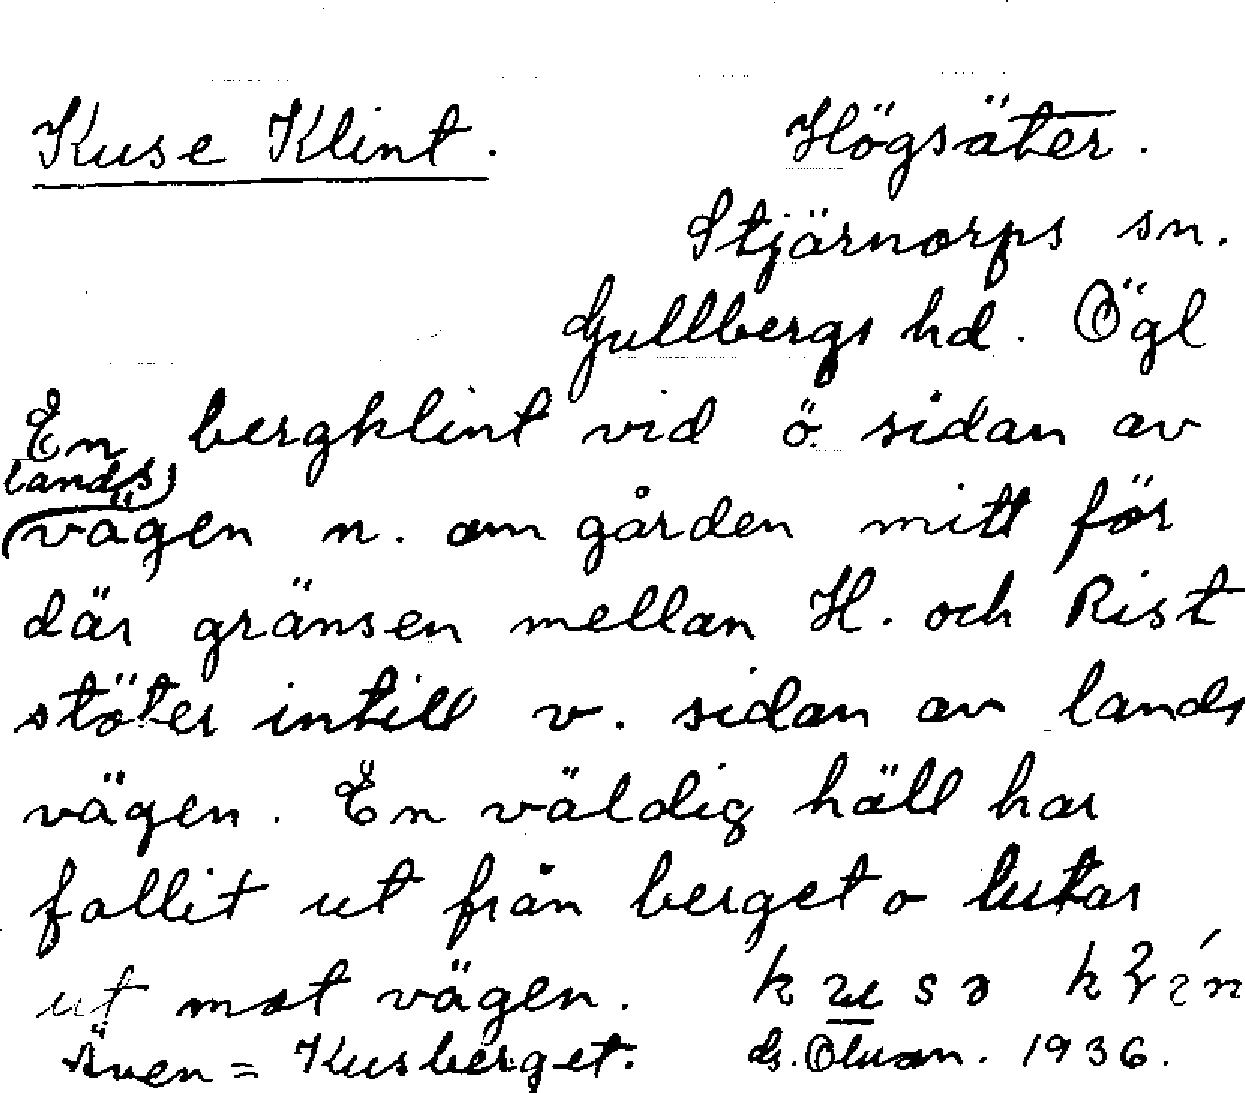 Kuse Klint. Högsäter.
Stjärnorps sn.
Gullbergs hd. Ögl
En bergklint vid ö. sidan av
lands
vägen n. om gården mitt för
där gränsen mellan H. och Rist
stöter intill v. sidan av lands
vägen. En väldig häll har
fallit ut från berget o lutar
ut mot vägen.
Även = Kusberget. 1936.